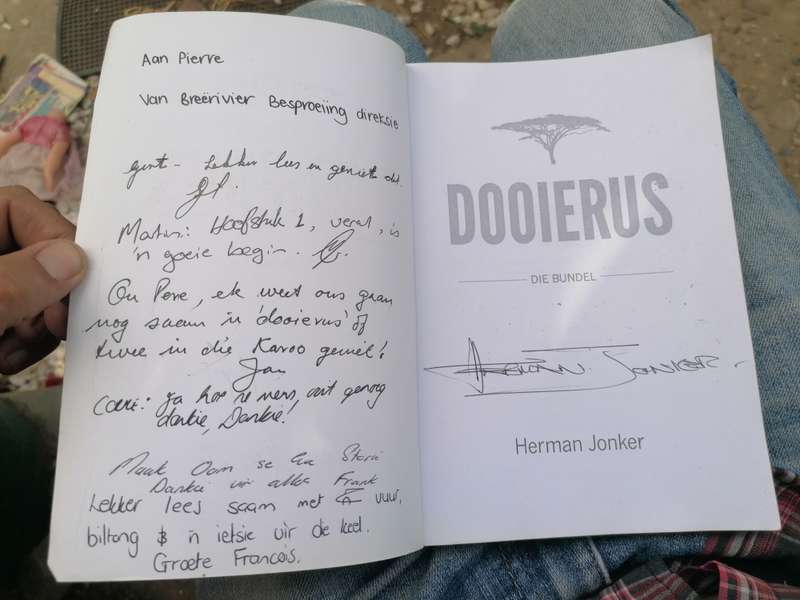 Aan Pierre
Van Breërivier Besproeiing direksie
Lekker lees en geniet dit.
Hoofstuk 1, veral, is
'n goeie begin.
Ou Pere, ek weet ons gaan
nog saam in 'dooierus' of
twee in die Karoo geniet!
Jan
ja hoe sê mens, ooit genoeg
dankie, Dankie!
Maak Oom se
Dankie vir alles Frank
Lekker lees saam met vuur,
biltong & 'n ietsie vir de keel.
Groete Francois.
DOOIERUS
DIE BUNDEL
Herman Jonker
Herman Jonker